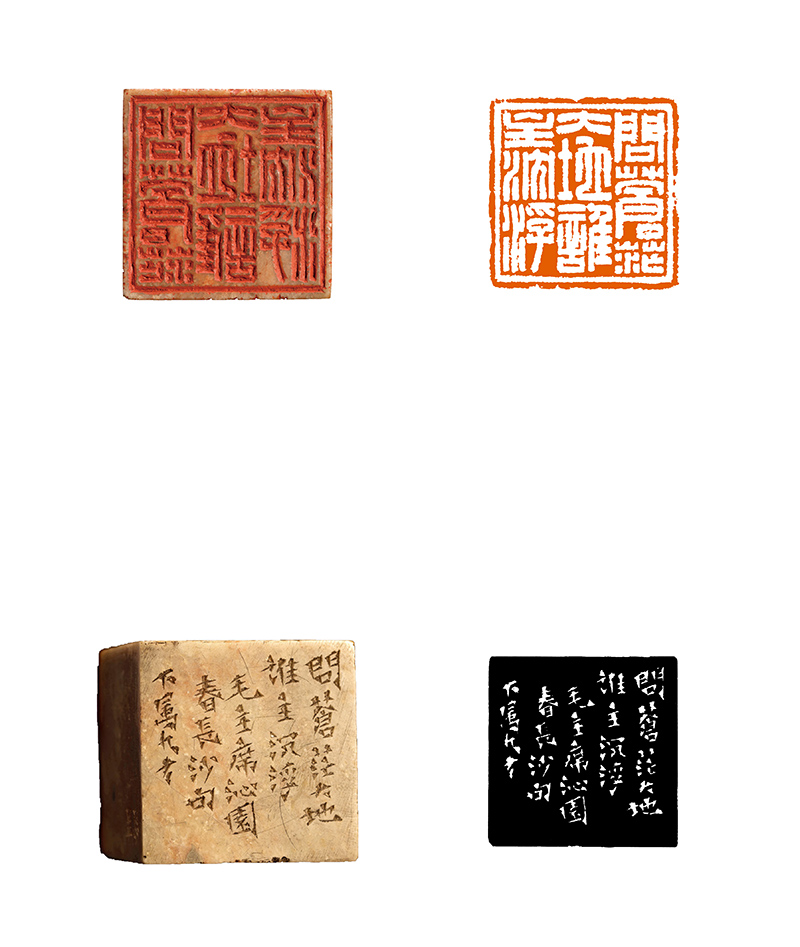 問蒼茫
大地誰
主沉浮
問蒼茫
大地誰
主沉浮
問蒼茫大地
誰主沉浮
毛主席沁園
春長沙句
問蒼茫大地
誰主沉浮
毛主席沁園
春長沙句